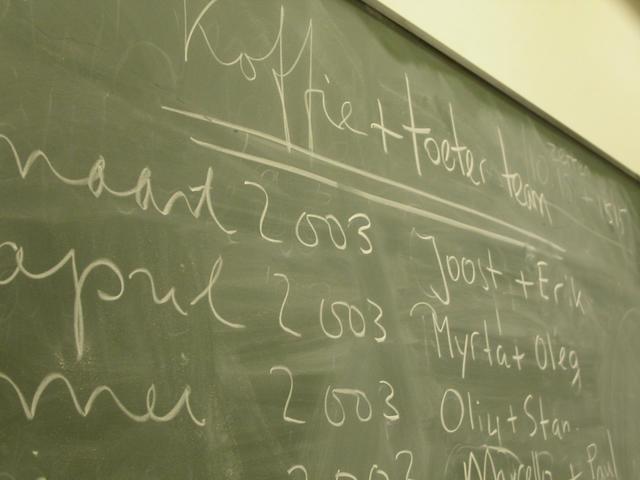 Koffie + toeter team
maart 2003 Joost + Erik
april 2003 Myrta + Oleg
mei 2003 Oliy + Stan
2003 Marcello + Paul